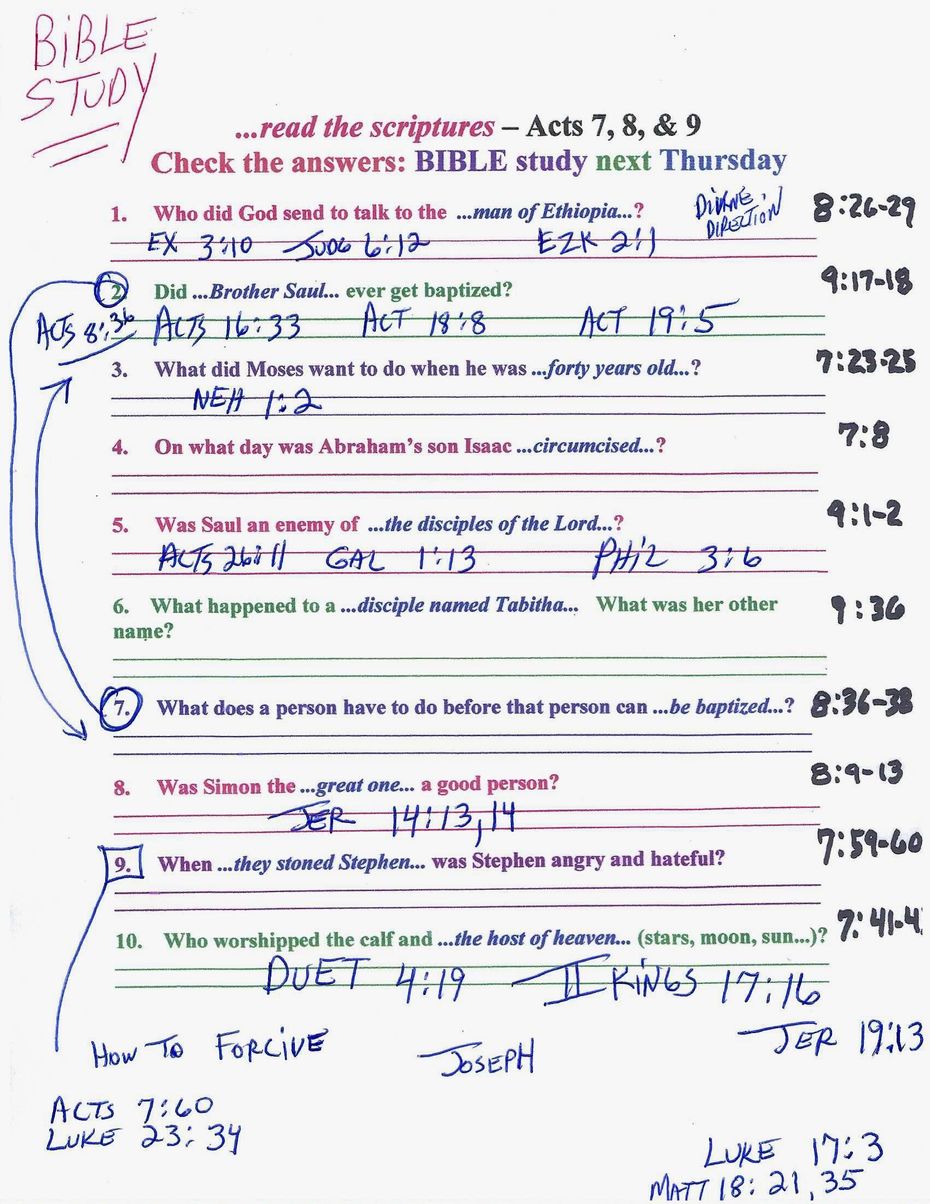 BiBLE
STUDY
...read the scriptures – Acts 7, 8, & 9
Check the answers: BIBLE study next Thursday
1. Who did God send to talk to the ...man of Ethiopia...? DIVINE DIRECTION 8:26-29
EX 3:10 JUDG 6:12 EZK 2:1
2. Did ...Brother Saul... ever get baptized? 9:17-18
ACTS 8:36 ACTS 16:33 ACT 18:8 ACT 19:5
3. What did Moses want to do when he was ...forty years old...? 7:23-25
NEH 1:2
4. On what day was Abraham's son Isaac ...circumcised...? 7:8
5. Was Saul an enemy of ...the disciples of the Lord...? 9:1-2
ACTS 26:11 GAL 1:13 PHiL 3:6
6. What happened to a ...disciple named Tabitha... What was her other 9:36
name?
7. What does a person have to do before that person can ...be baptized...? 8:36-38
8. Was Simon the ...great one... a good person? 8:9-13
JER 14:13,14
9. When ...they stoned Stephen... was Stephen angry and hateful? 7:59-60
10. Who worshipped the calf and ...the host of heaven... (stars, moon, sun...)? 7:41-4
DUET 4:19 II KiNGS 17:16
HOW TO FORGIVE JOSEPH JER 19:13
ACTS 7:60
LUKE 23:34
LUKE 17:3
MATT 18:21,35